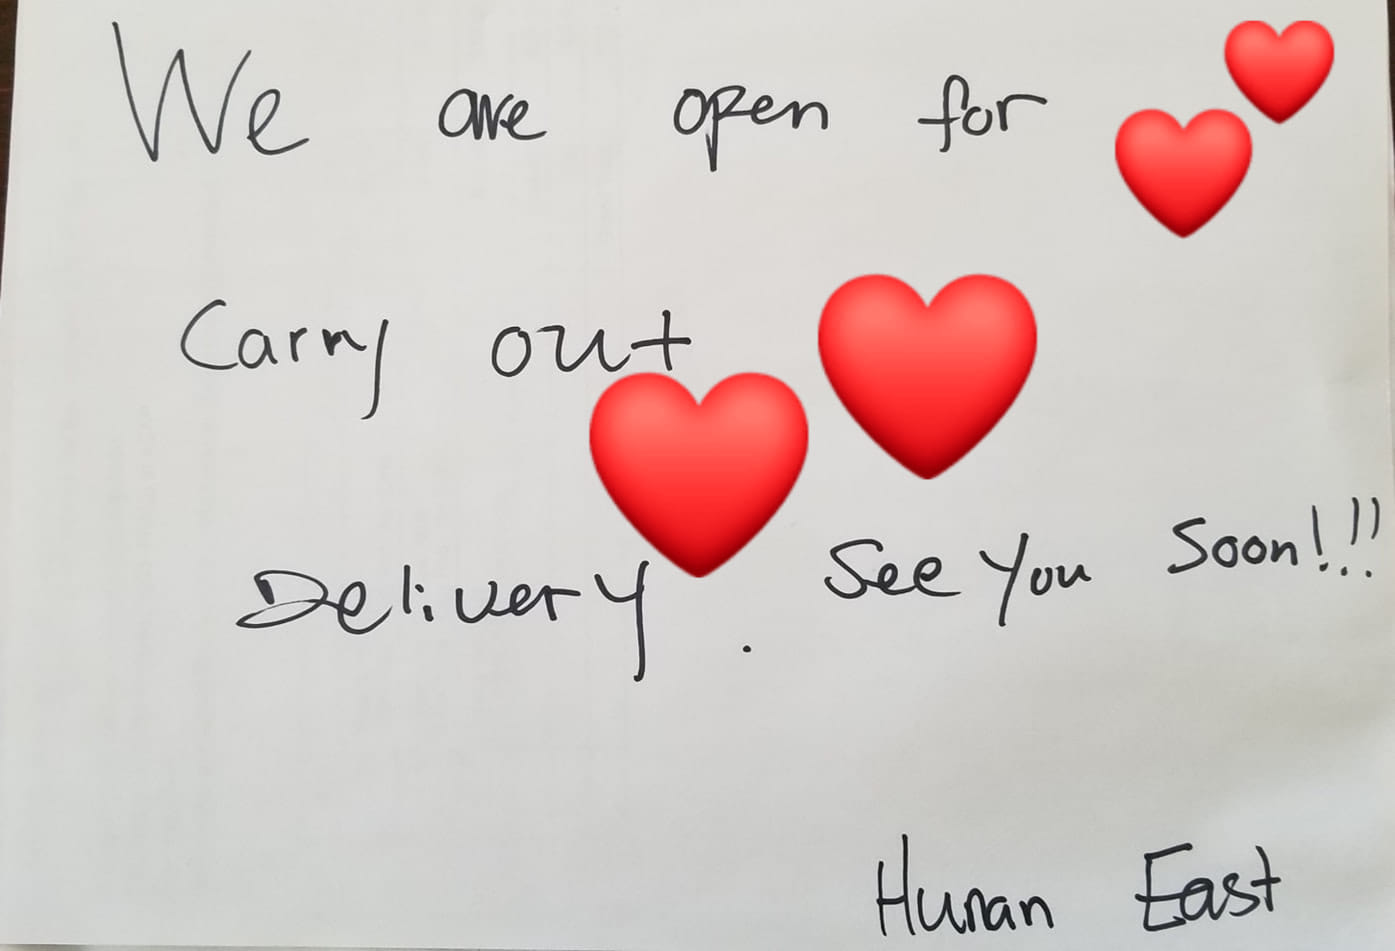 We are open for
Carry out
Delivery . See You Soon!!!
Hunan East